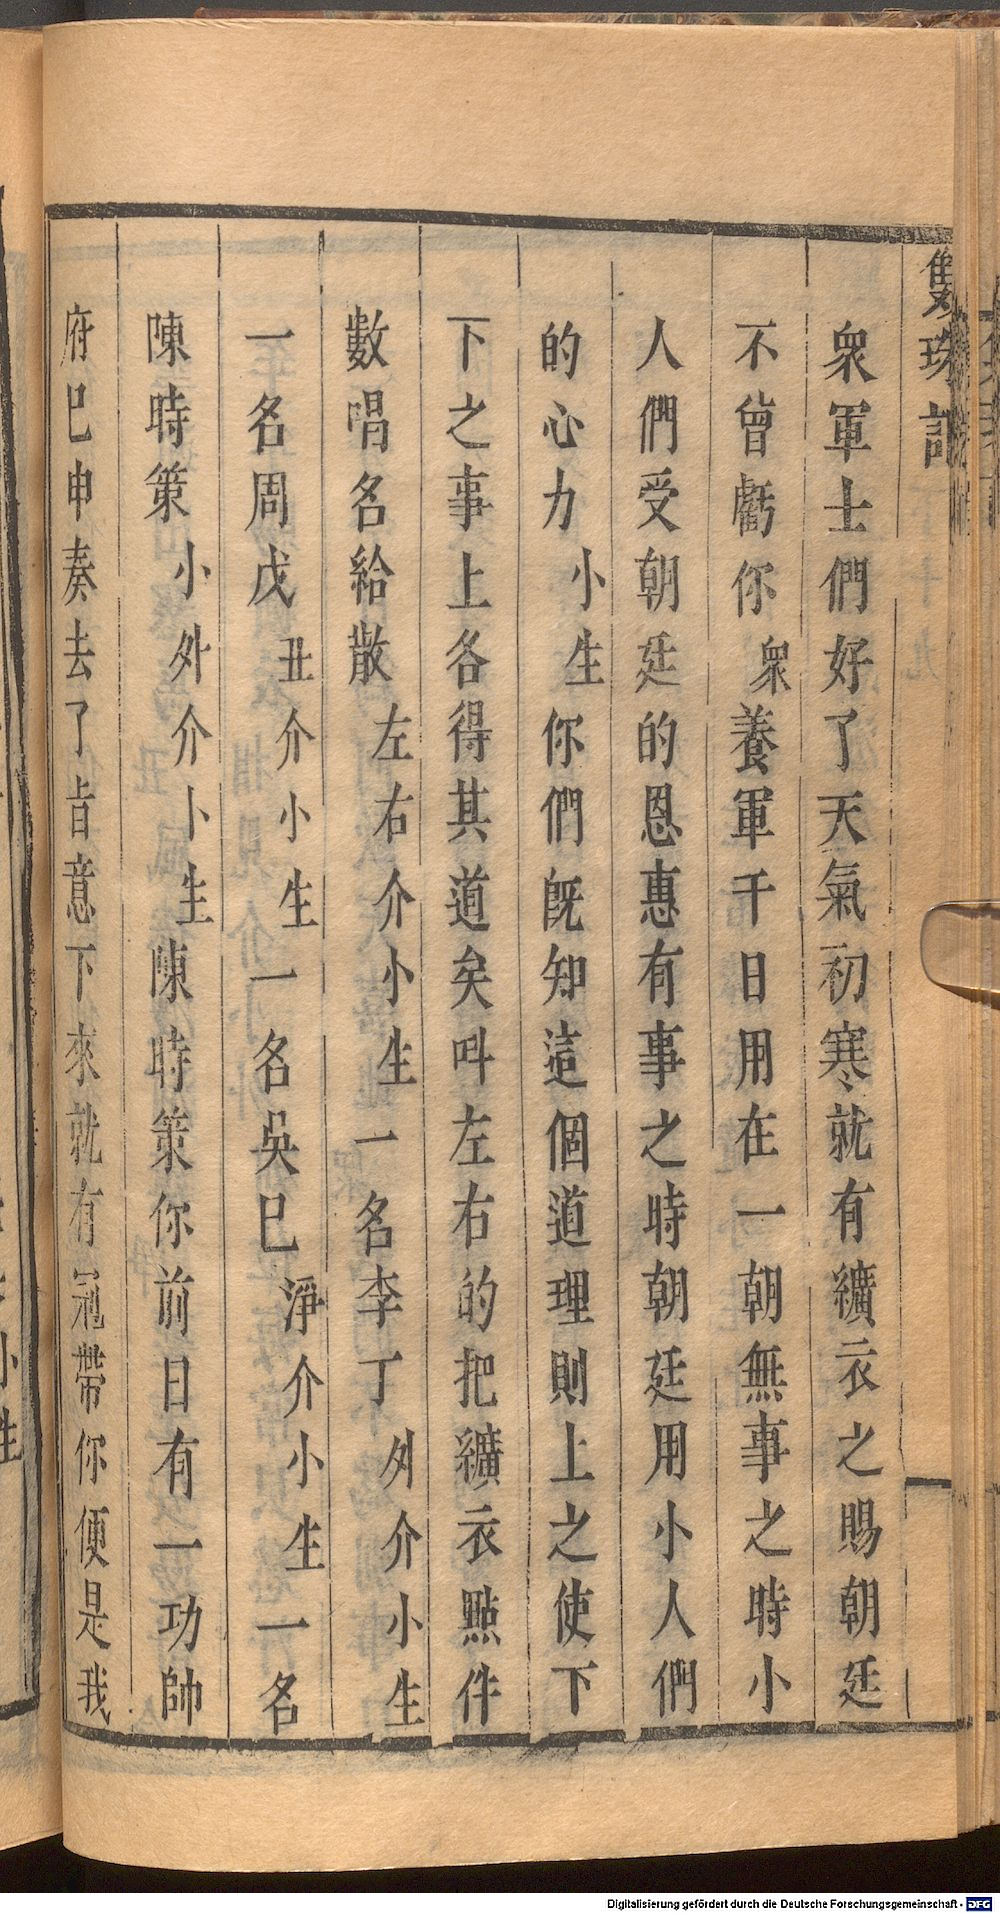 雙珠記
衆軍士們好了天氣初寒就有纊衣之賜朝廷
不曾虧你衆養軍千日用在一朝無事之時小
人們受朝廷的恩惠有事之時朝廷用小人們
的心力小生你們旣知這個道理則上之使下
下之事上各得其道矣呌左右的把纊衣㸃件
數唱名給散左右介小生一名李丁外介小生
一名周戊丑介小生一名吳巳淨介小生一名
陳時策小外介小生陳時策你前日有一功帥
府巳申奏去了旨意下來就有冠帶你便是我
Digitalisierung gefördert durch die Deutsche Forschungsgemeinschaft - DFG